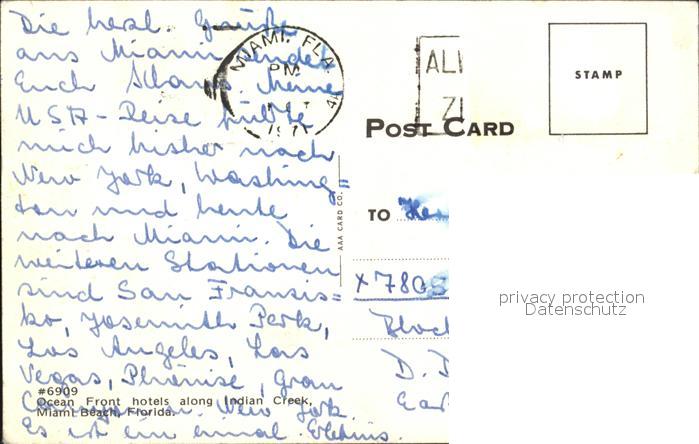 Die herzl. Grüße
aus Miami sendet
Euch Meine
USA-Reise führte
mich bisher nach
New York, Washing=
ton und heute
nach Miami. Die
weiteren Stationen
sind San Fransis=
ko, Yosemith Park,
Los Angeles, Las
Vegas, Phönise, Gran
New York.
Es ist ein einmal. Erlebnis.
#6909
Ocean Front hotels along Indian Creek,
Miami Beach, Florida.
MIAMI, FLA
PM
197
ALI
ZI
STAMP
POST CARD
AAA CARD CO.
TO
x 7805
Bloc
D.
privacy protection
Datenschutz